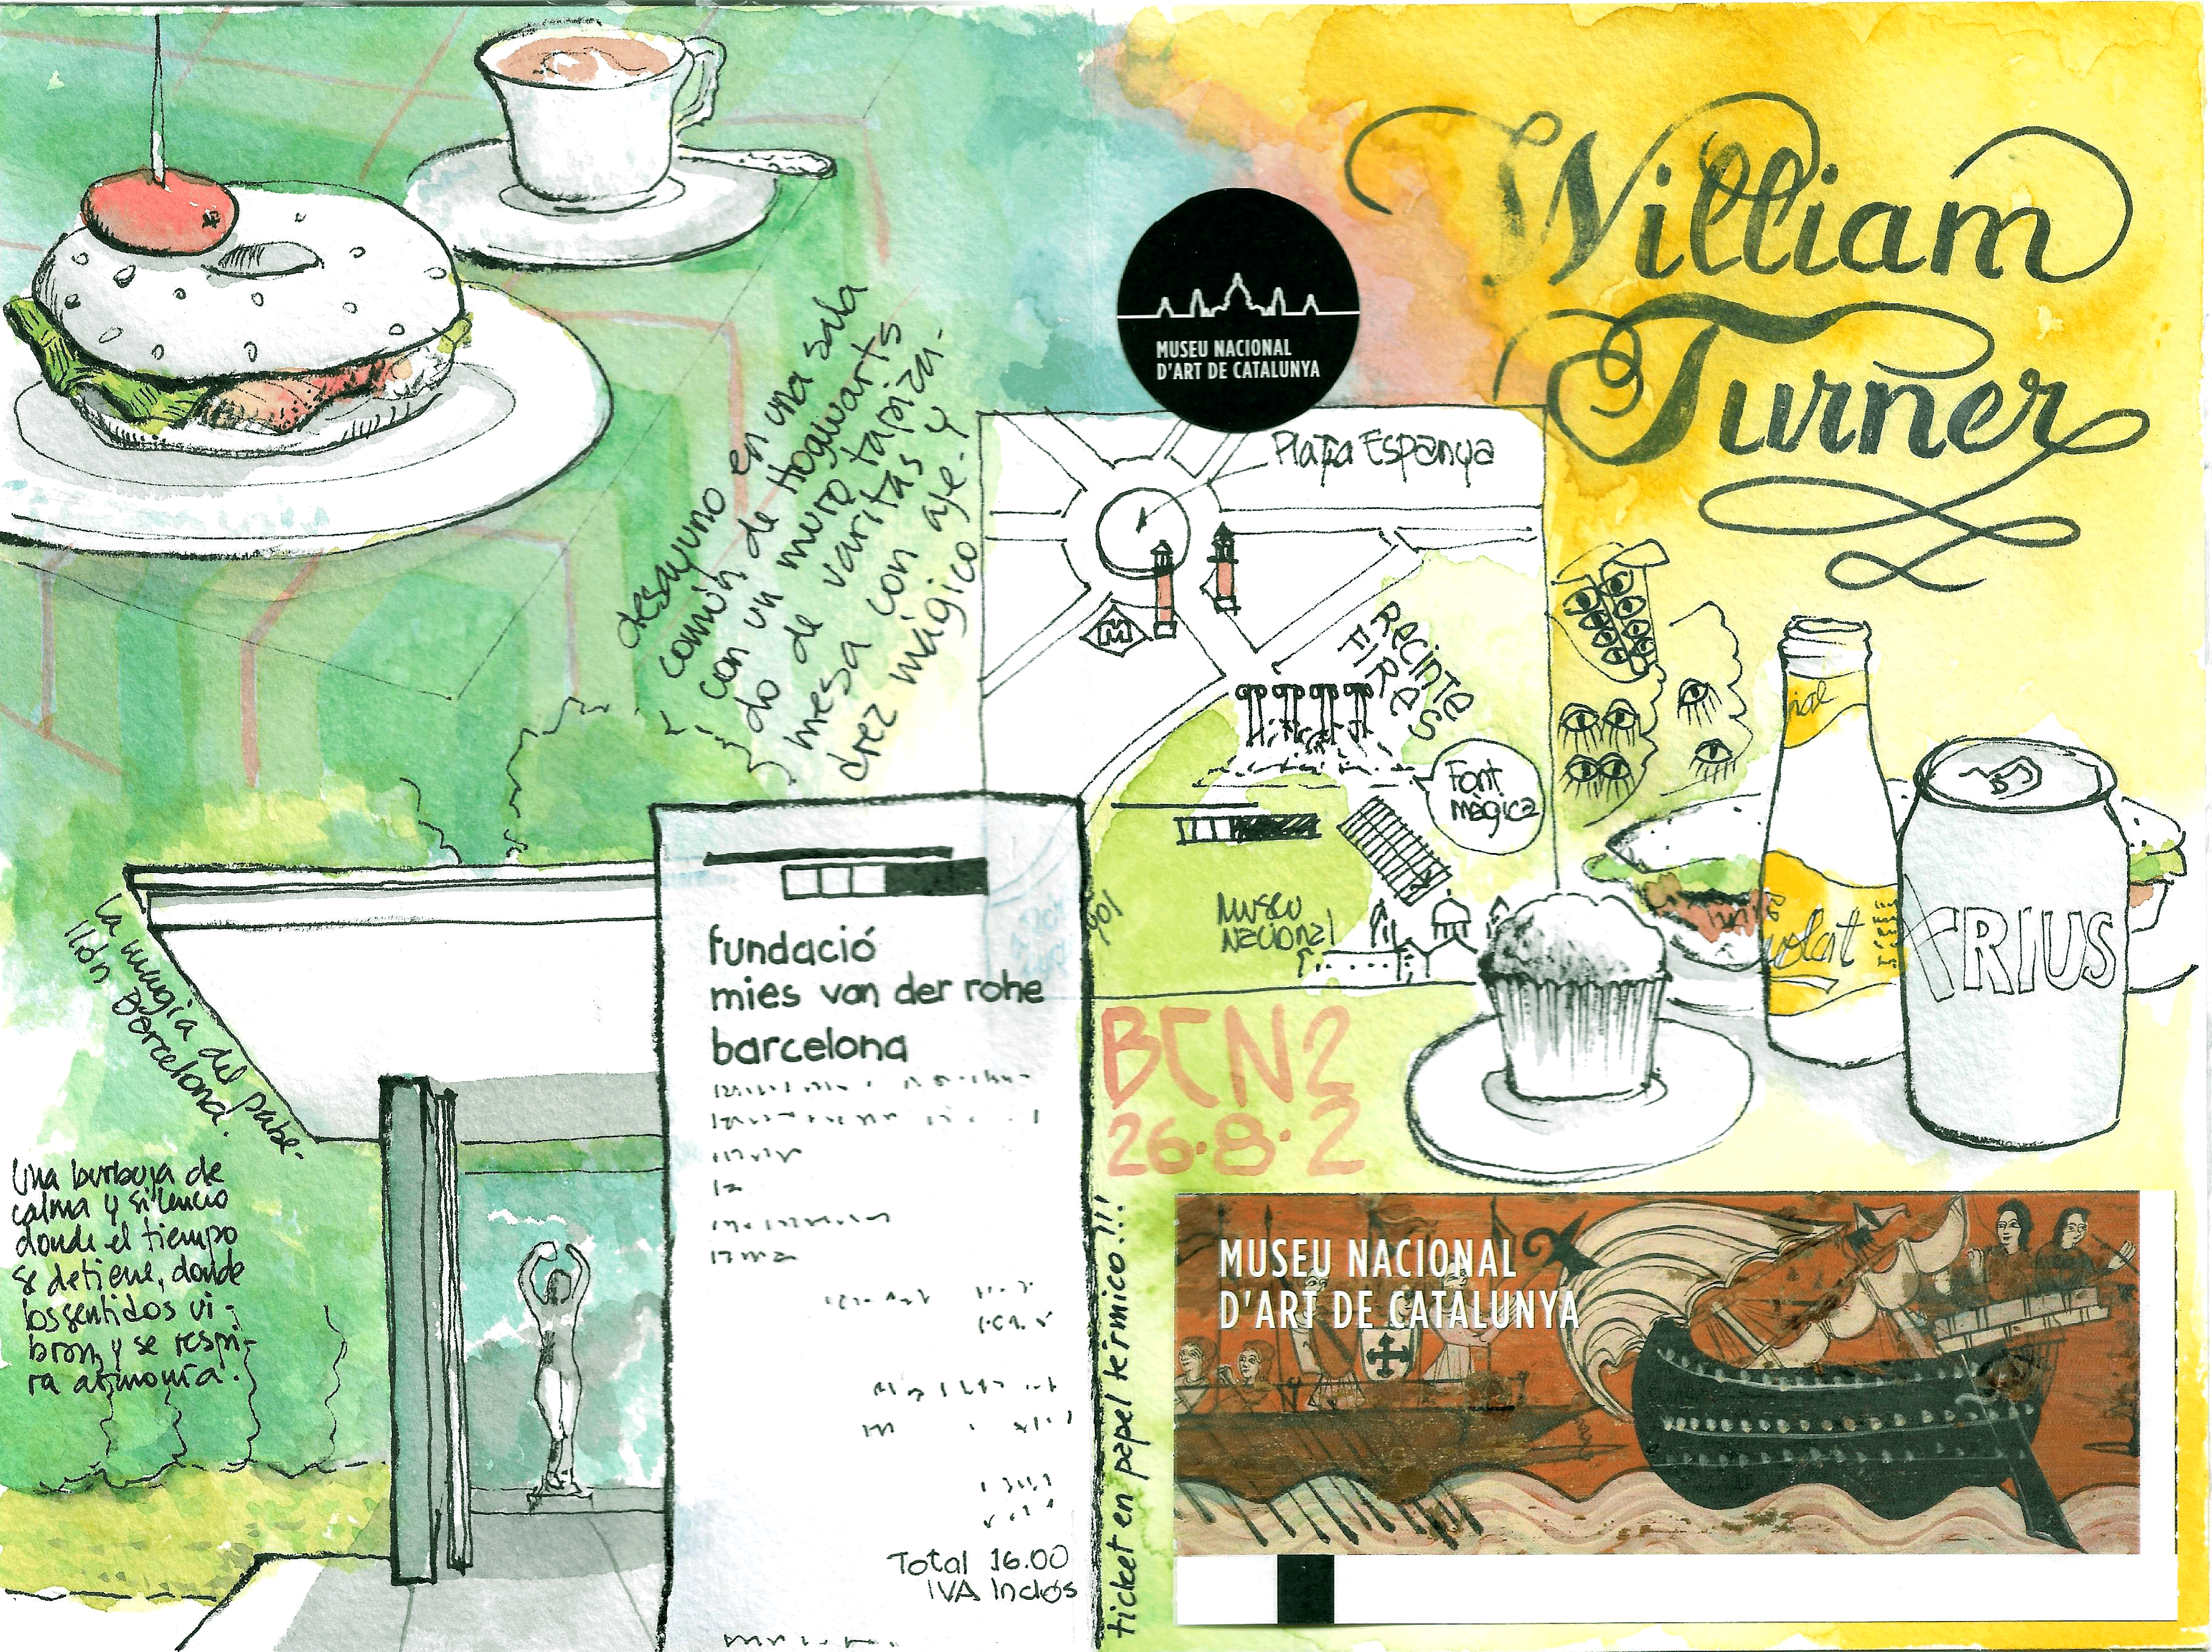 desayuno en una sala
común de Hogwarts
con un muro tapiza-
do de varitas y
mesa con aje-
drez mágico
La magia del pabe-
llón Barcelona.
Una burbuja de
calma y silencio
donde el tiempo
se detiene, donde
los sentidos vi-
bran y se respi-
ra armonía.
fundació
mies van der rohe
barcelona
Total 16.00
IVA Inclòs
William
Turner
MUSEU NACIONAL
D'ART DE CATALUNYA
Plaça Espanya
M
Recinte
FIRES
Font
màgica
MUSEU
NACIONAL
olat
RIUS
BCN2
26·8·2
ticket en papel térmico!!!
MUSEU NACIONAL
D'ART DE CATALUNYA